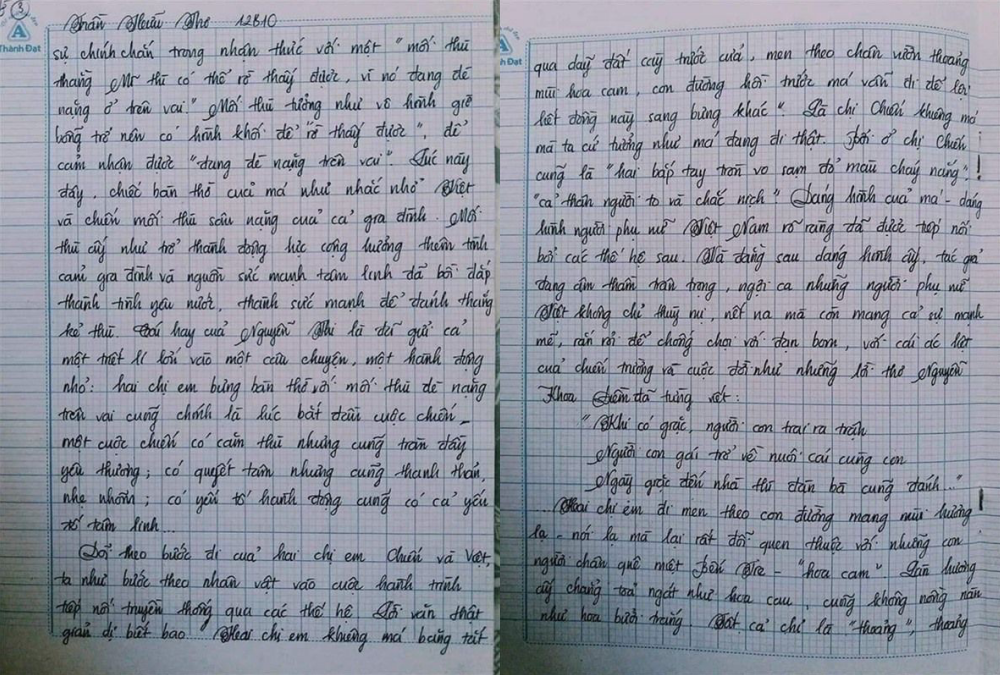 3
Trần Hữu Thơ 12B10
Thành Đạt
sự chính chắn trong nhận thức với một "mối thù
thằng Mĩ thì có thể rờ thấy được, vì nó đang đè
nặng ở trên vai" Mối thù tưởng như vô hình giờ
bỗng trở nên có hình khối để "rờ thấy được", để
cảm nhận được "đang đè nặng trên vai". Lúc này
đây, chiếc bàn thờ của má như nhắc nhở Việt
và chiến mối thù sâu nặng của cả gia đình. Mối
thù ấy như trở thành động lực cộng hưởng thêm tình
cảm gia đình và nguồn sức mạnh tâm linh đã bồi đắp
thành tình yêu nước, thành sức mạnh để đánh thắng
kẻ thù. hay của Nguyễn Thi là đã gửi cả
một triết lí lớn vào một câu chuyện, một hành động
nhỏ: hai chị em bưng bàn thờ với mối thù đè nặng
trên vai cũng chính là lúc bắt đầu cuộc chiến -
một cuộc chiến có căm thù nhưng cũng tràn đầy
yêu thương; có quyết tâm nhưng cũng thanh thản,
nhẹ nhõm; có yếu tố hành động cũng có cả yếu
tố tâm linh...
Dõi theo bước đi của hai chị em Chiến và Việt,
ta như bước theo nhân vật vào cuộc hành trình
tiếp nối truyền thống qua các thế hệ. Lời văn thật
giản dị biết bao "Hai chị em khiêng má băng tắt
Thành Đạt
qua dãy đất cày trước cửa, men theo chân vườn thoảng
mùi hoa cam, con đường hồi trước má vẫn đi để lội
hết đồng này sang bưng khác". Là chị Chiến khiêng má
mà ta cứ tưởng như má đang đi thật. Bởi ở chị Chiến
cũng là "hai bắp tay tròn vo sạm đỏ màu cháy nắng"
"cả thân người to và chắc nịch" Dáng hình của má - dáng
hình người phụ nữ Việt Nam rõ ràng đã được tiếp nối
bởi các thế hệ sau. Và đằng sau dáng hình ấy, tác giả
đang âm thầm trân trọng, ngợi ca những người phụ nữ
Việt không chỉ thùy mị, nết na mà còn mang cả sự mạnh
mẽ, rắn rỏi để chống chọi với đạn bom, với cái ác liệt
của chiến trường và cuộc đời như những lời thơ Nguyễn
Khoa Điềm đã từng viết:
"Khi có giặc, người con trai ra trận
Người con gái trở về nuôi cái cùng con
Ngày giặc đến nhà thì đàn bà cũng đánh..."
...Hai chị em đi men theo con đường mang mùi hương
lạ - nói lạ mà lại rất đỗi quen thuộc với những con
người chân quê miệt Bến Tre - "hoa cam". Làn hương
ấy chẳng toả ngát như hoa cau, cũng không nồng nàn
như hoa bưởi trắng. Tất cả chỉ là "thoảng", thoảng